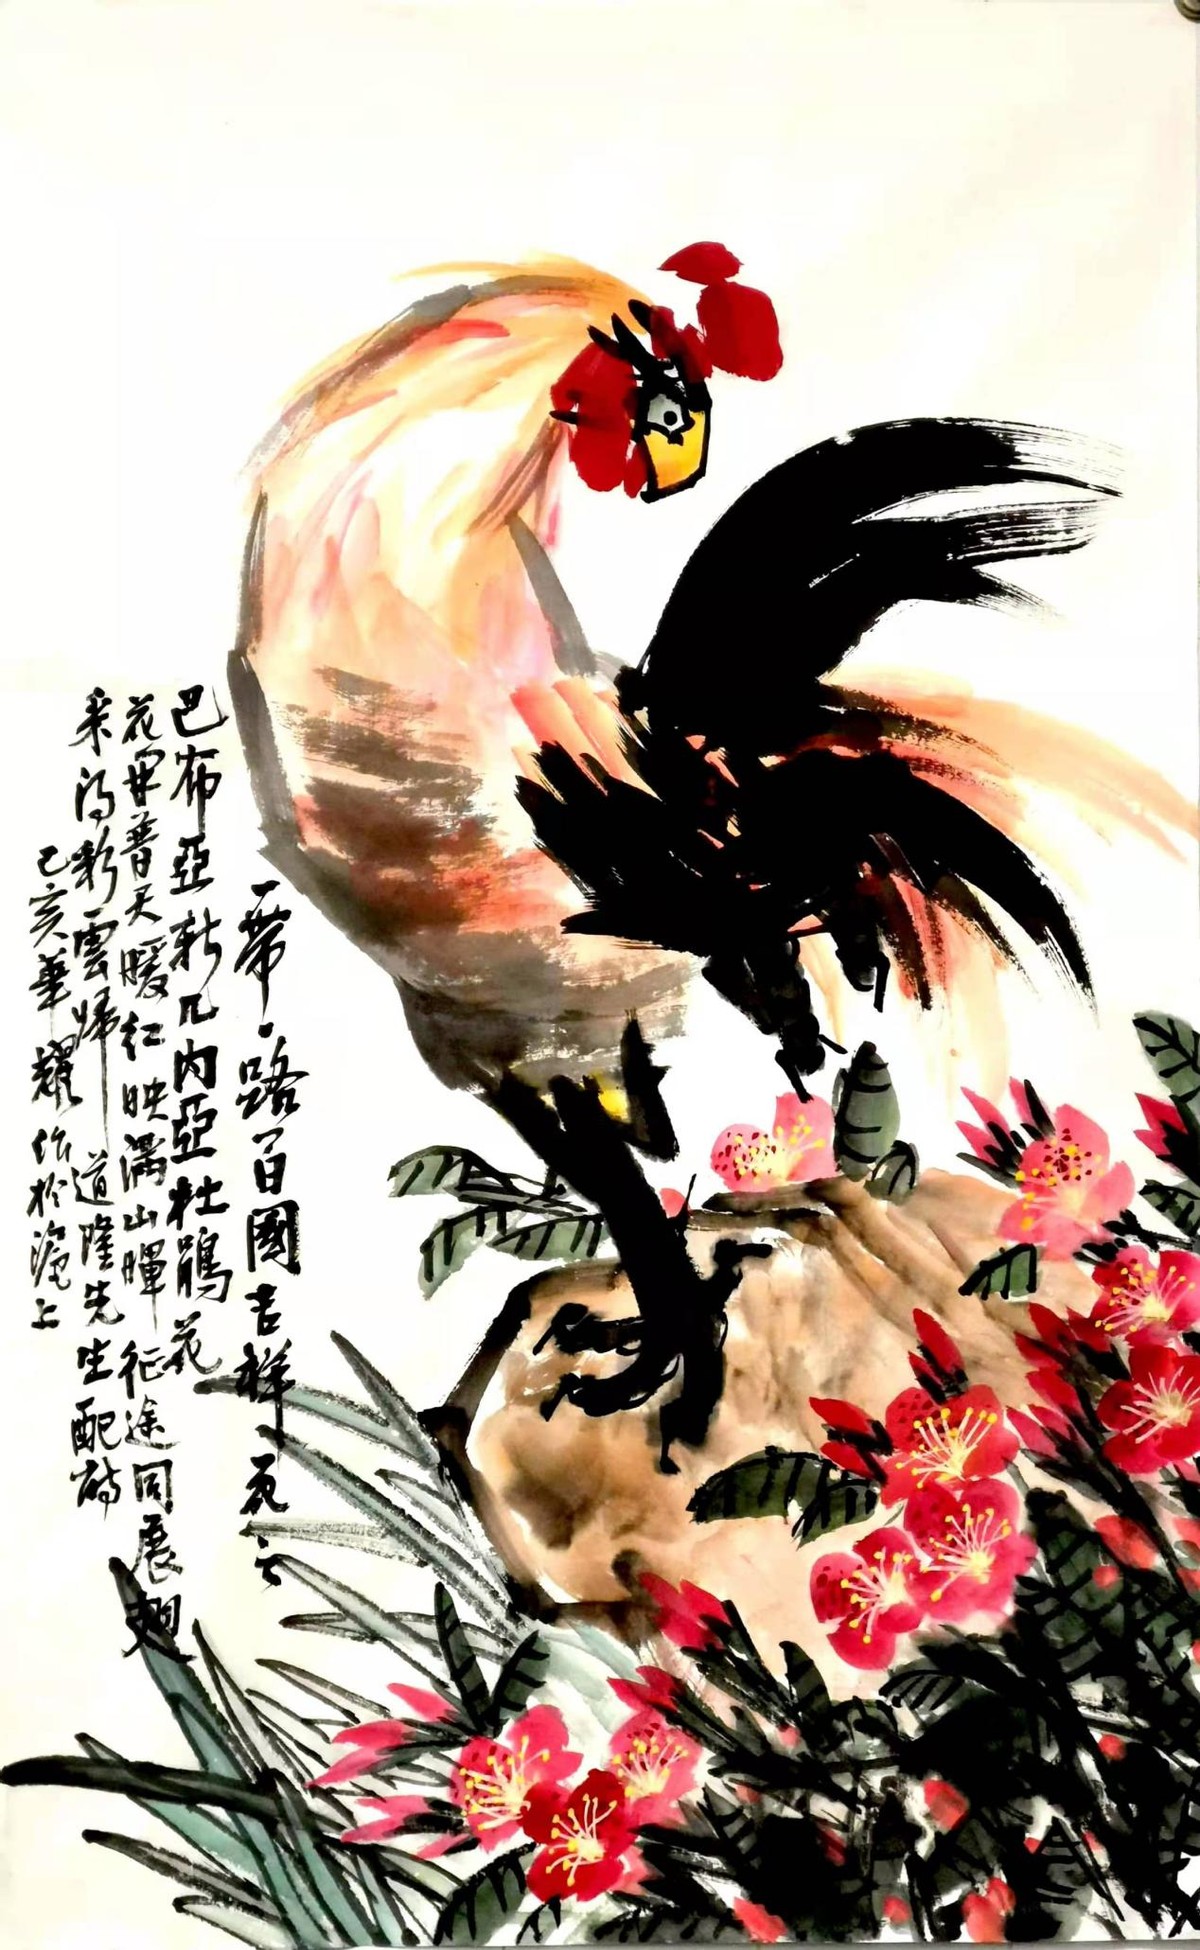 一帶一路百國吉祥花之
巴布亞新几内亞杜鵑花
花開普天暖红映满山暉征途同展翅
采得彩雲歸 道隆先生配诗
己亥華耀作於滬上